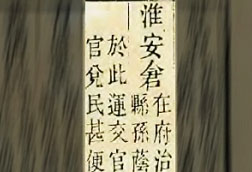 淮安倉在府治
縣孫蔭
於此運交官
官兌民甚便